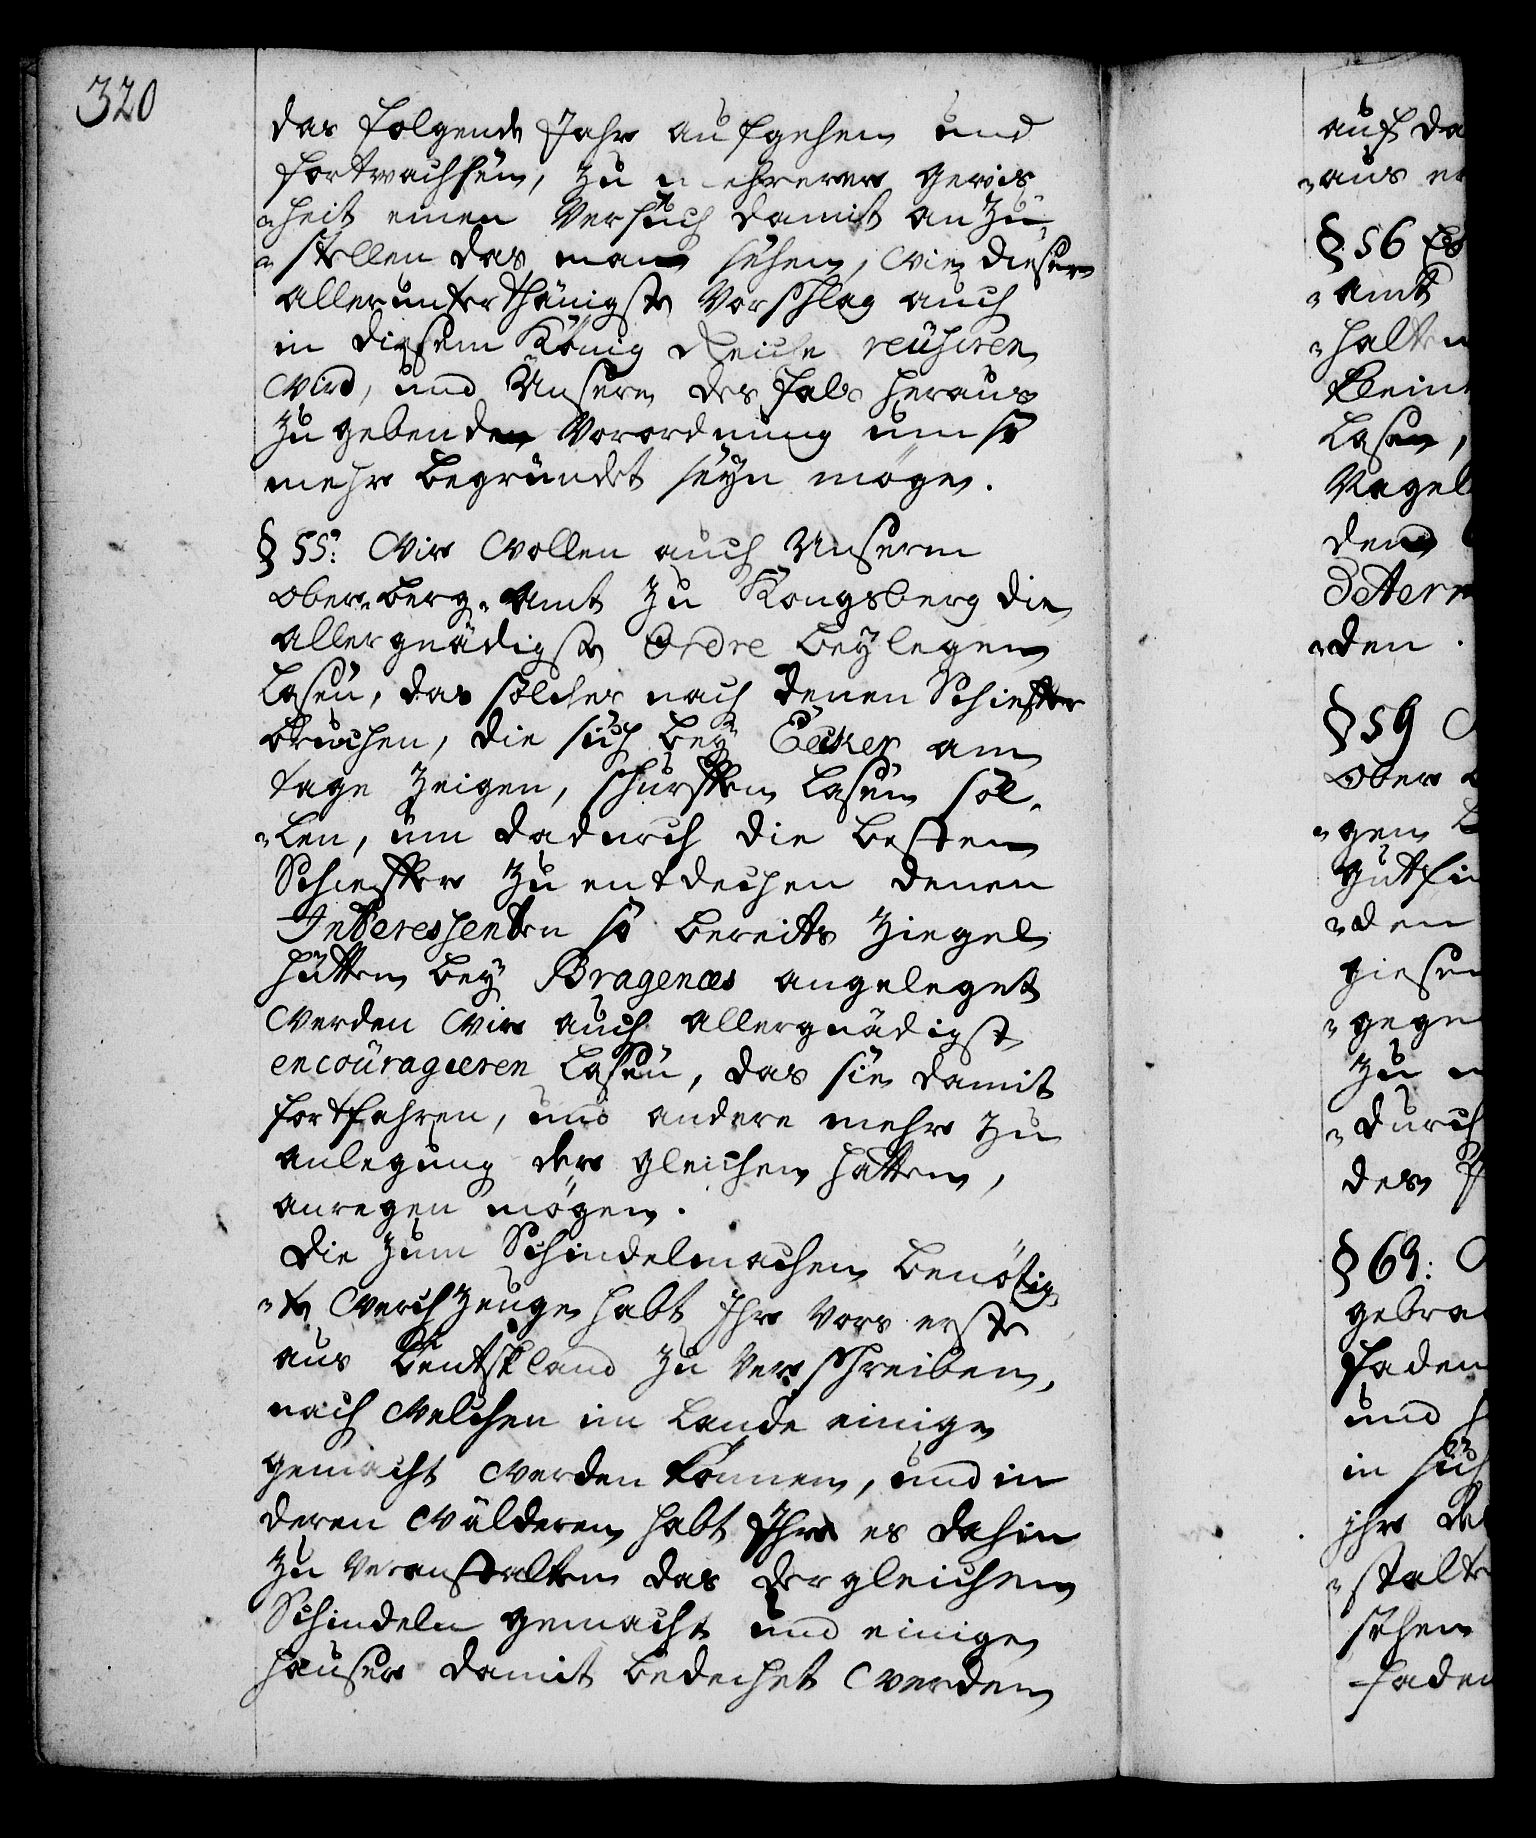 320
das folgende Jahr aufgehen und
fortwachsen, zu mehrerer gewis
"heit einen Versuch damit an zu
"stellen das man sehen, wie dieser
allerunterthänigste Vorschlag auch
in diesem König Reiche reuhiren
wird, und Unsere des fals heraus
zu gebenden Verordnung um so
mehr begründet seyn möge.
§ 55: Wir wollen auch Unserm
ober-berg-Amt zu Kongsberg die
allergnädigste Ordre beylegen
lasen, das solches nach denen Schieffer
brüchen, die sich bey Ecker am
tage zeigen, schürffen lasen sol-
"len, um dadurch die besten
Schieffer zu entdechen denen
Interessenten so bereits Ziegel
hütten bey Bragenæs angeleget
werden wir auch allergnädigst
encouragieren lasen, das sie damit
fortfahren, und andere mehr zu
anlegung der gleichen hütten,
anregen mögen.
Die zum Schindelmachen benötig
"te Werchzeuge habt Ihr vors erste
aus Teutschland zu verschreiben,
nach welchen im Lande einige
gemacht werden können, und in
deren Wälderen habt Ihr es dahin
zu veranstalten das dergleichen
Schindeln gemacht und einige
häuser damit bedechet werden
auf da
"aus
§ 56 Es
"amt
"halten
keine
lasen,
Nagel
den
"den
§ 59
Ober
"gen
gutfin
"den
giesen
"gege
zu
"durch
des
§ 69:
gebra
faden
und
in
ihr
"stalte
sehen
faden